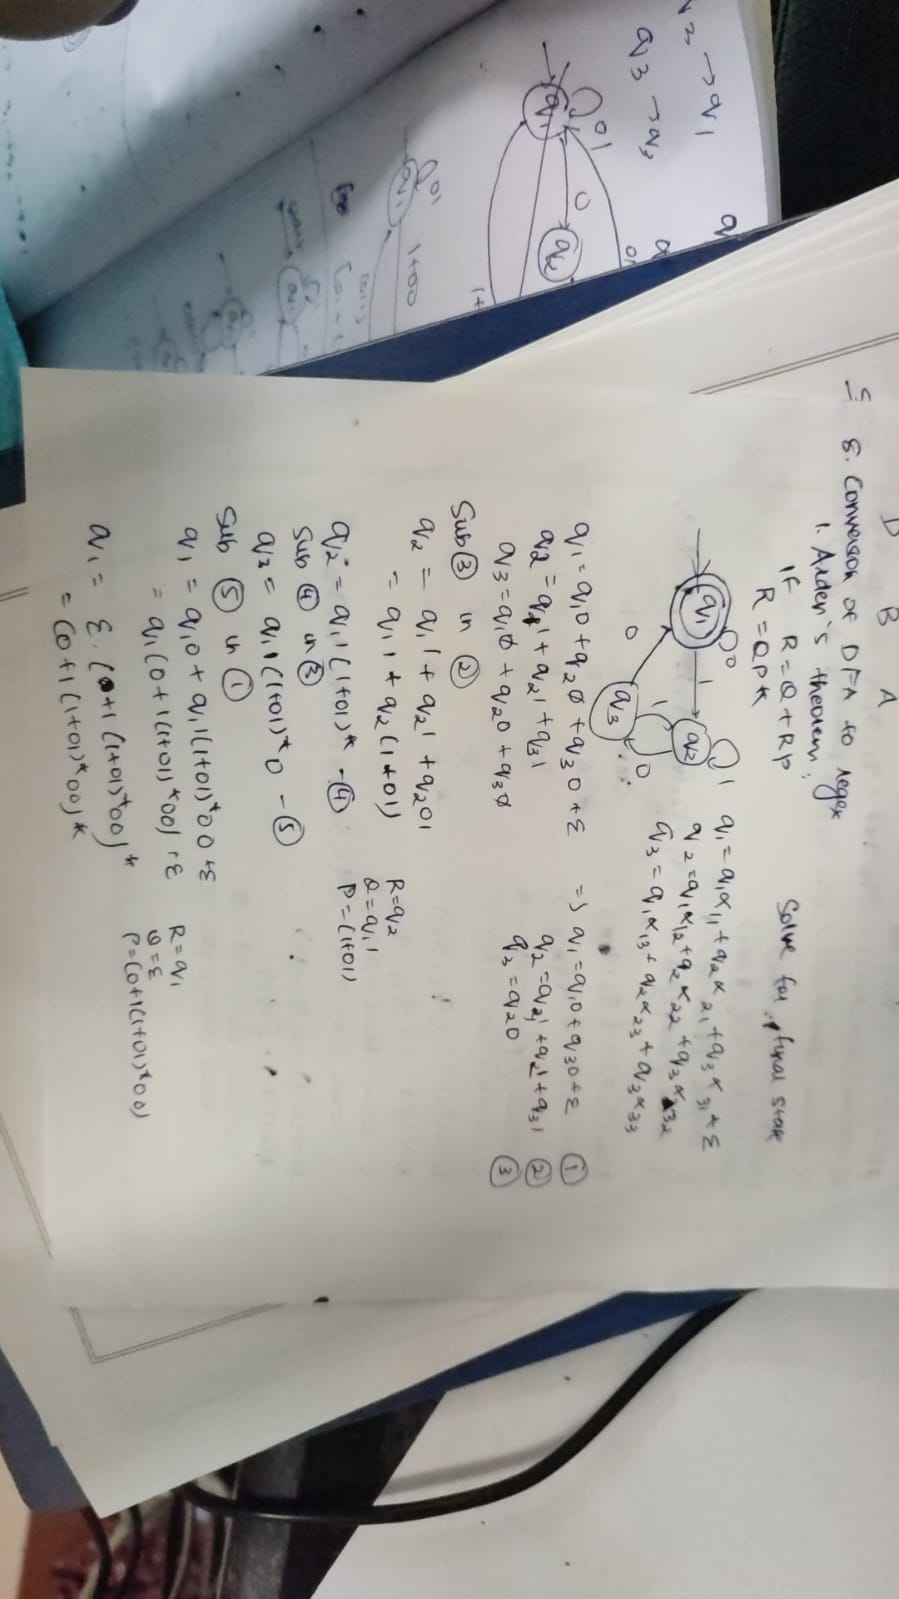 D B A
8. Conversion of DFA to regex
1. Arden's theorem:
If R = Q + RP
R = QP*
Solve for final state
q1 0 1 q2 1 0 1 q3 0
q1 = q1α11 + q2α21 + q3α31 + ε
q2 = q1α12 + q2α22 + q3α32
q3 = q1α13 + q2α23 + q3α33
q1 = q10 + q2ø + q30 + ε => q1 = q10 + q30 + ε ①
q2 = q11 + q21 + q31 q2 = q21 + q21 + q31 ②
q3 = q1ø + q20 + q3ø q3 = q20 ③
Sub ③ in ②
q2 = q11 + q21 + q201
= q11 + q2(1+01)
R = q2
Q = q11
P = (1+01)
q2 = q11(1+01)* - ④
Sub ④ in ③
q3 = q11(1+01)*0 - ⑤
Sub ⑤ in ①
q1 = q10 + q11(1+01)*00 + ε
= q1(0+1(1+01)*00) + ε
R = q1
Q = ε
P = (0+1(1+01)*00)
q1 = ε.(0+1(1+01)*00)*
= (0+1(1+01)*00)*
→ q1
q3 → q3
q1 01 0 q2
q1 01 1+00